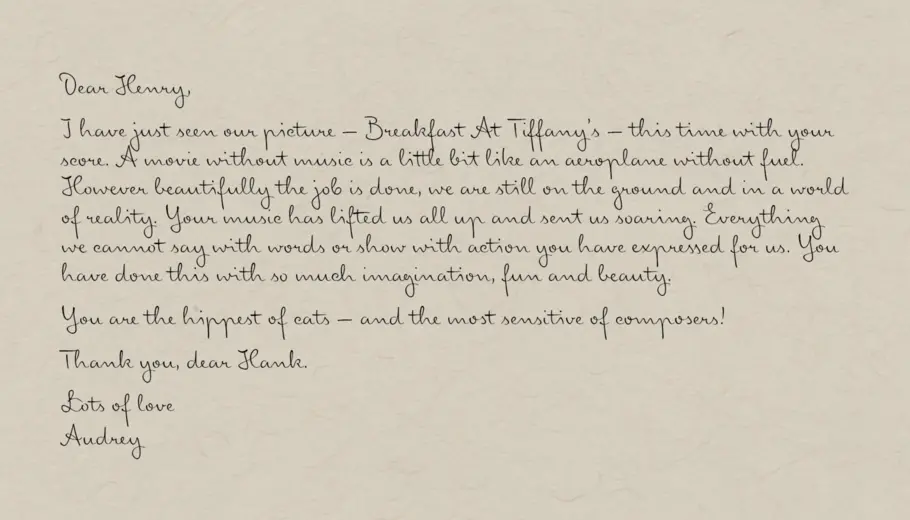 Dear Henry,
I have just seen our picture – Breakfast At Tiffany's – this time with your
score. A movie without music is a little bit like an aeroplane without fuel.
However beautifully the job is done, we are still on the ground and in a world
of reality. Your music has lifted us all up and sent us soaring. Everything
we cannot say with words or show with action you have expressed for us. You
have done this with so much imagination, fun and beauty.
You are the hippest of cats – and the most sensitive of composers!
Thank you, dear Hank.
Lots of love
Audrey